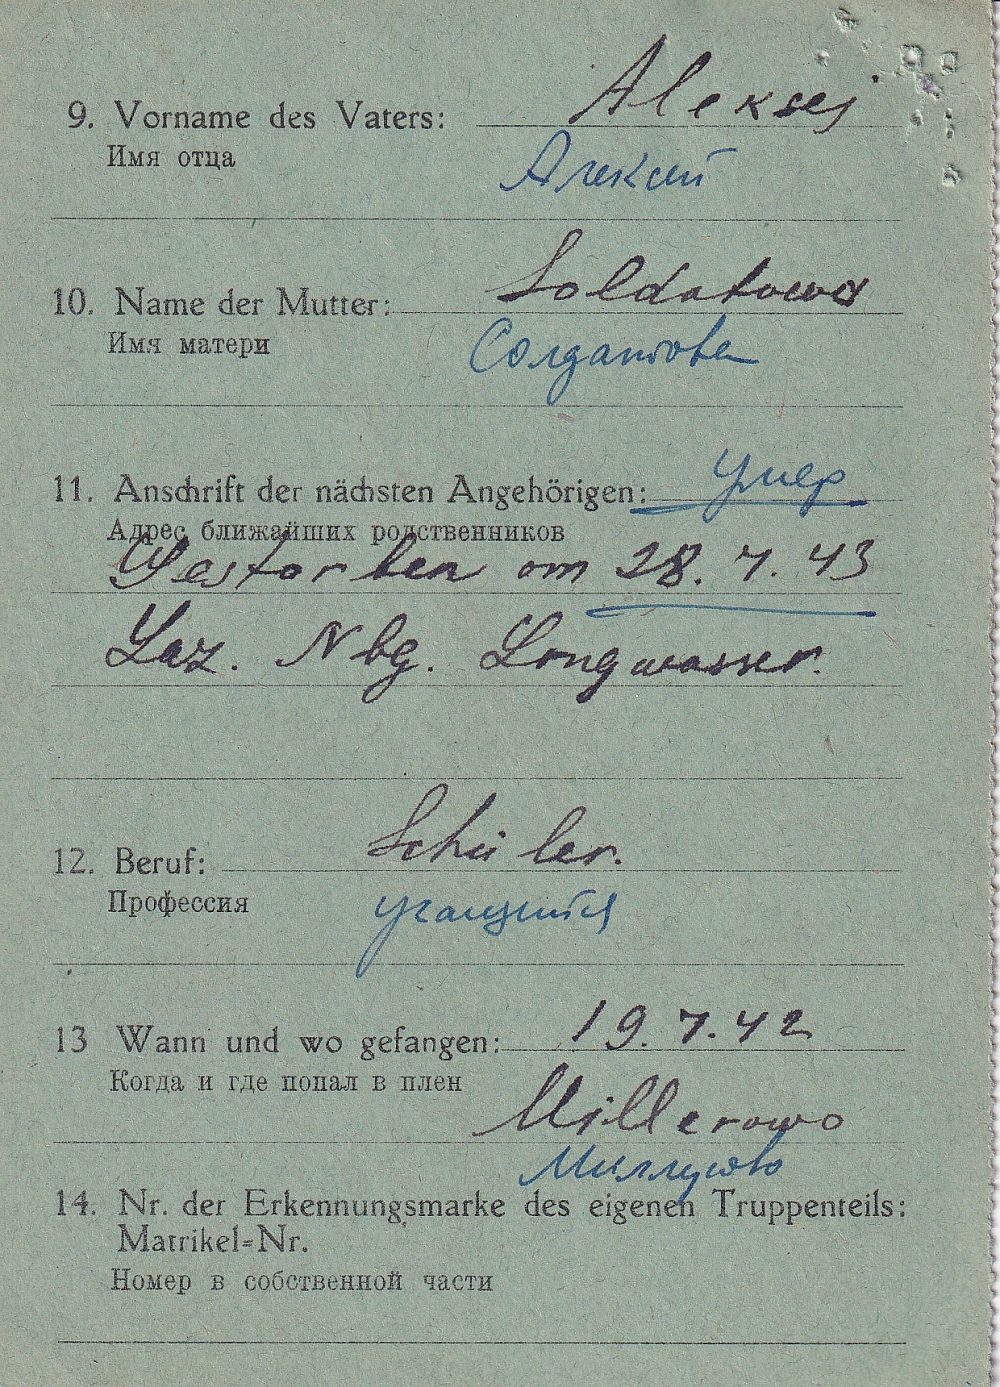 9. Vorname des Vaters: Aleksej
Имя отца
Алексей
10. Name der Mutter: Soldatowa
Имя матери
Солдатова
11. Anschrift der nächsten Angehörigen: умер
Адрес ближайших родственников
Gestorben am 28.7.43
Laz. Nbg. Langwasser.
12. Beruf: Schüler.
Профессия
учащийся
13 Wann und wo gefangen: 19.7.42
Когда и где попал в плен
Millerowo
Миллерово
14. Nr. der Erkennungsmarke des eigenen Truppenteils:
Matrikel=Nr.
Номер в собственной части